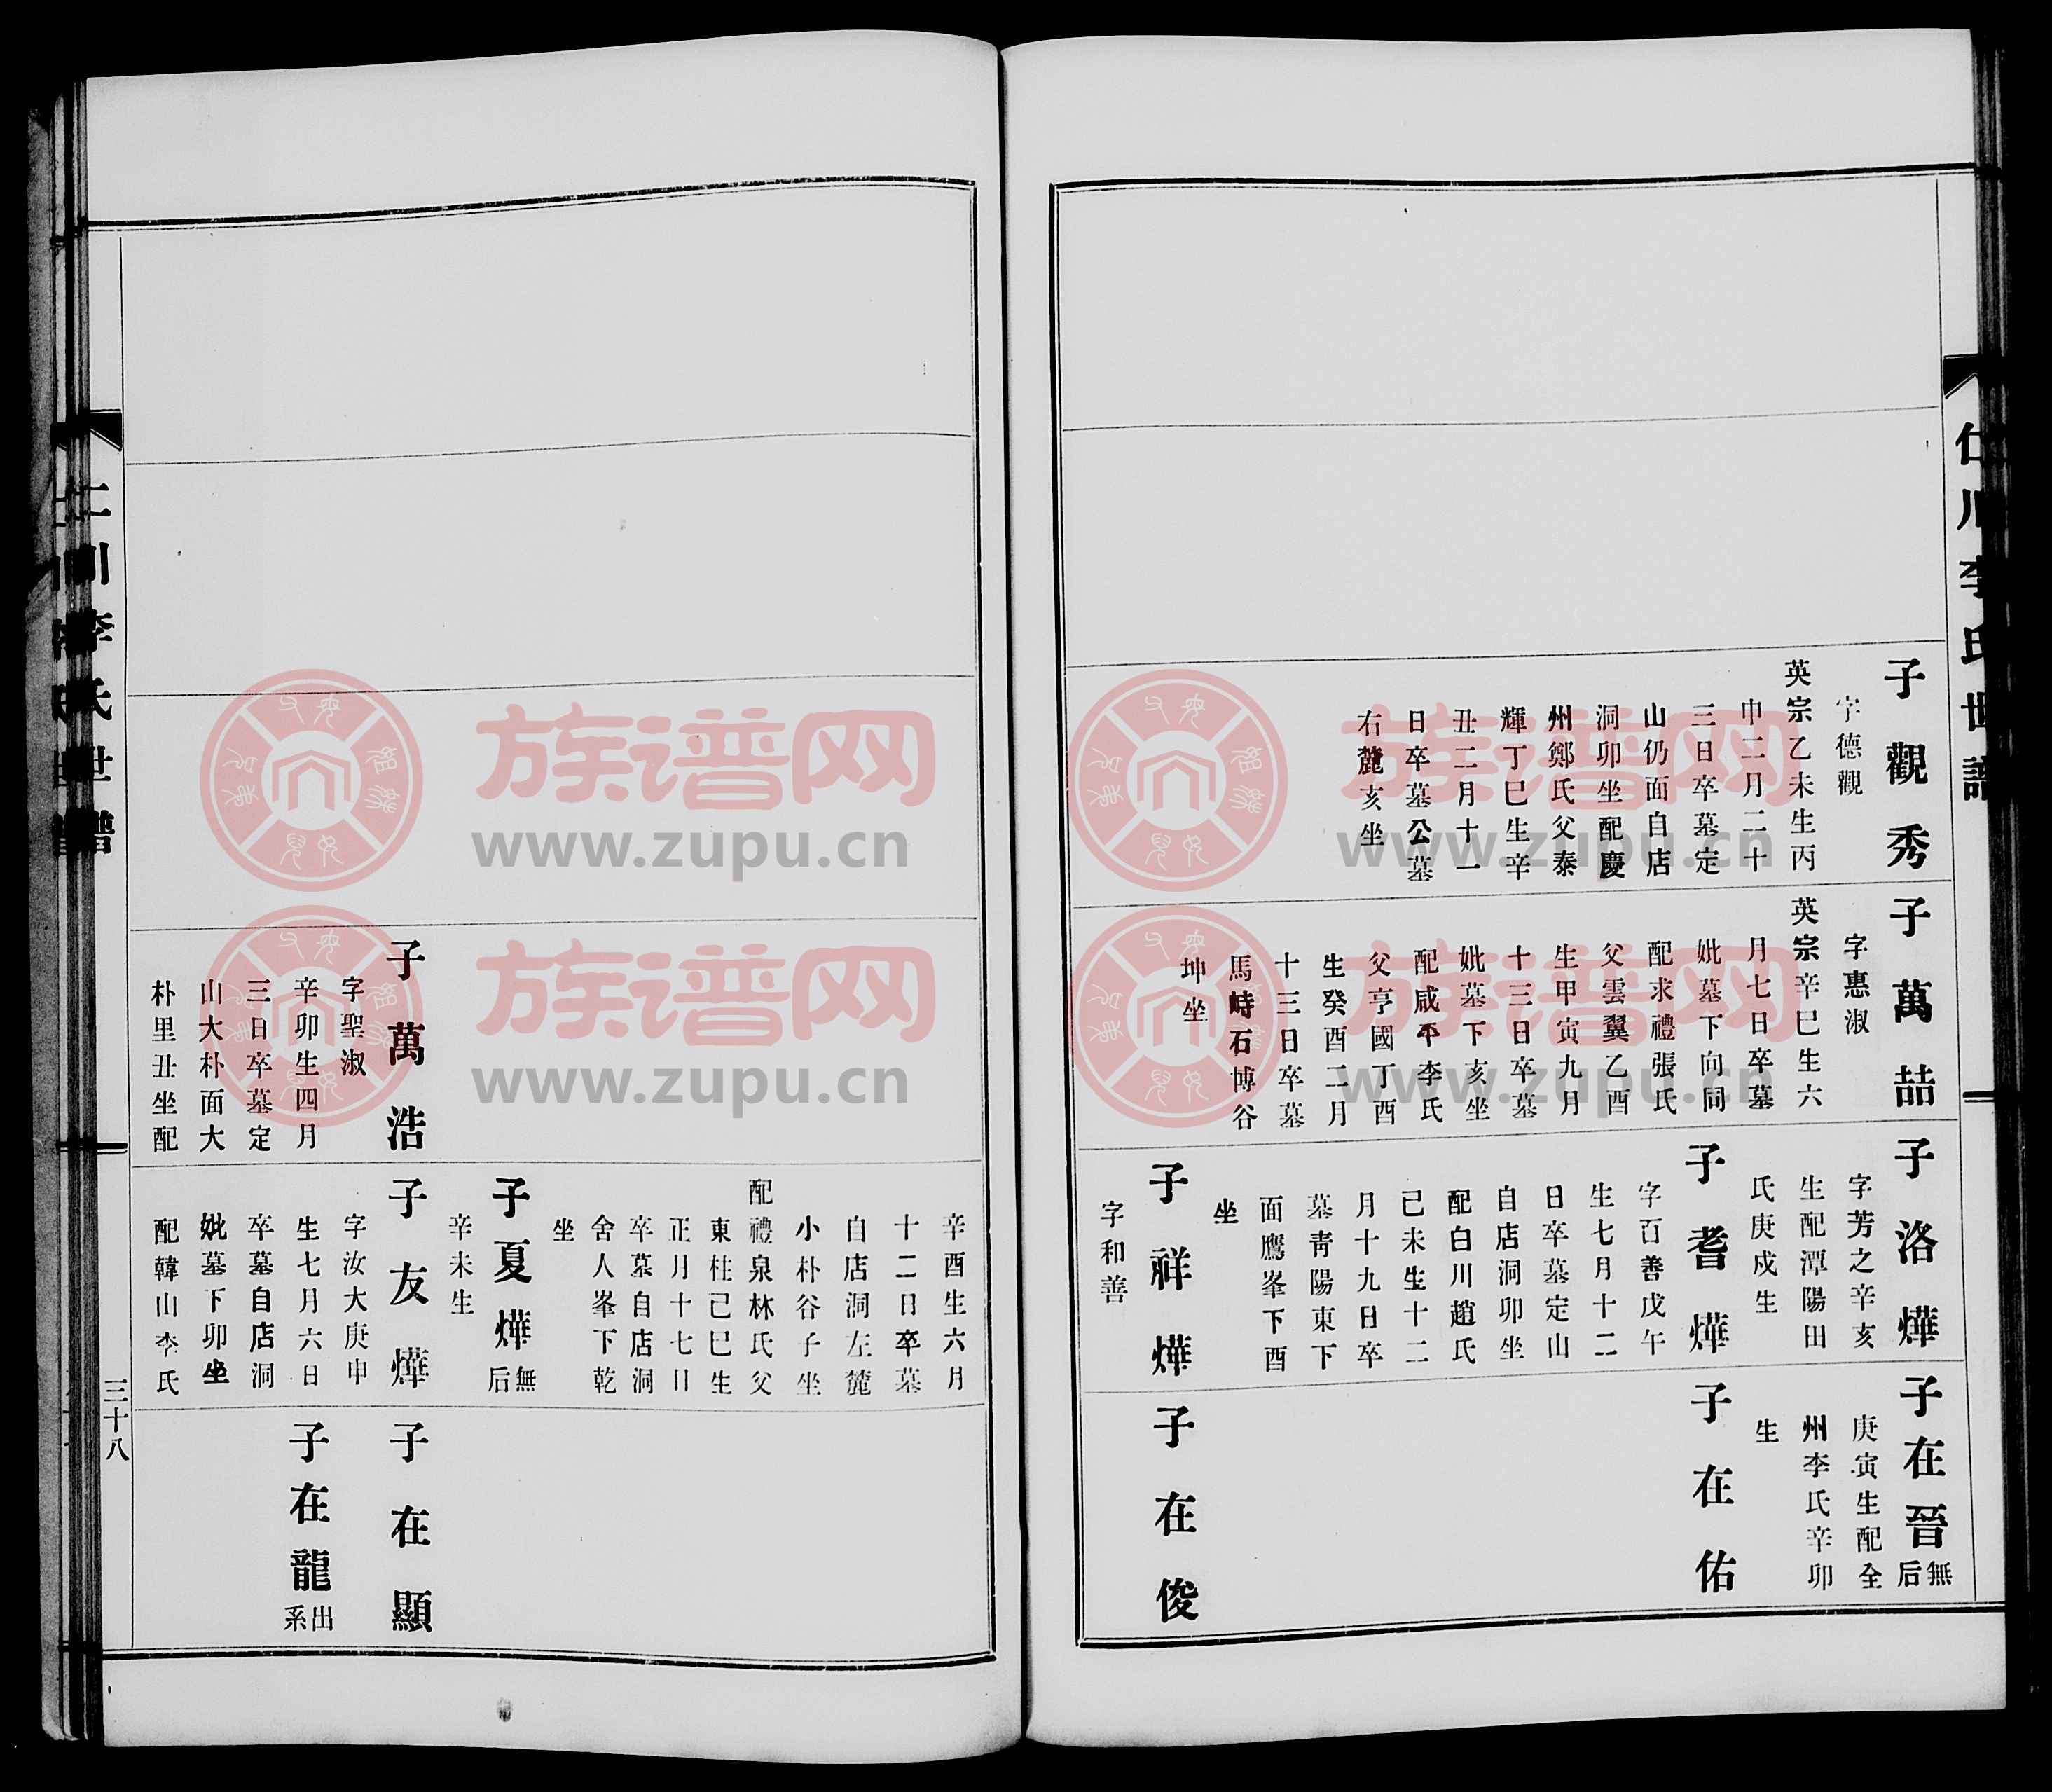 仁川李氏世譜
子觀秀
字德觀
英宗乙未生丙
申二月二十
三日卒墓定
山仍面自店
洞卯坐配慶
州鄭氏父泰
輝丁巳生辛
丑二月十一
日卒墓公墓
右麓亥坐
子萬喆
字惠淑
英宗辛巳生六
月七日卒墓
妣墓下向同
配求禮張氏
父雲翼乙酉
生甲寅九月
十三日卒墓
妣墓下亥坐
配咸平李氏
父亨國丁酉
生癸酉二月
十三日卒墓
馬峙石博谷
坤坐
子洛燁
字芳之辛亥
生配潭陽田
氏庚戍生
子耆燁
字百善戊午
生七月十二
日卒墓定山
自店洞卯坐
配白川趙氏
己未生十二
月十九日卒
墓青陽東下
面鷹峯下酉
坐
子祥燁
字和善
子在晉無后
庚寅生配全
州李氏辛卯
生
子在佑
子在俊
子萬浩
字聖淑
辛卯生四月
三日卒墓定
山大朴面大
朴里丑坐配
辛酉生六月
十二日卒墓
自店洞左麓
小朴谷子坐
配禮泉林氏父
東柱己巳生
正月十七日
卒墓自店洞
舍人峯下乾
坐
子夏燁無后
辛未生
子友燁
字汝大庚申
生七月六日
卒墓自店洞
妣墓下卯坐
配韓山李氏
子在顯
子在龍出系
仁川李氏世譜
三十八
族谱网
www.zupu.cn
族谱网
www.zupu.cn
族谱网
www.zupu.cn
族谱网
www.zupu.cn